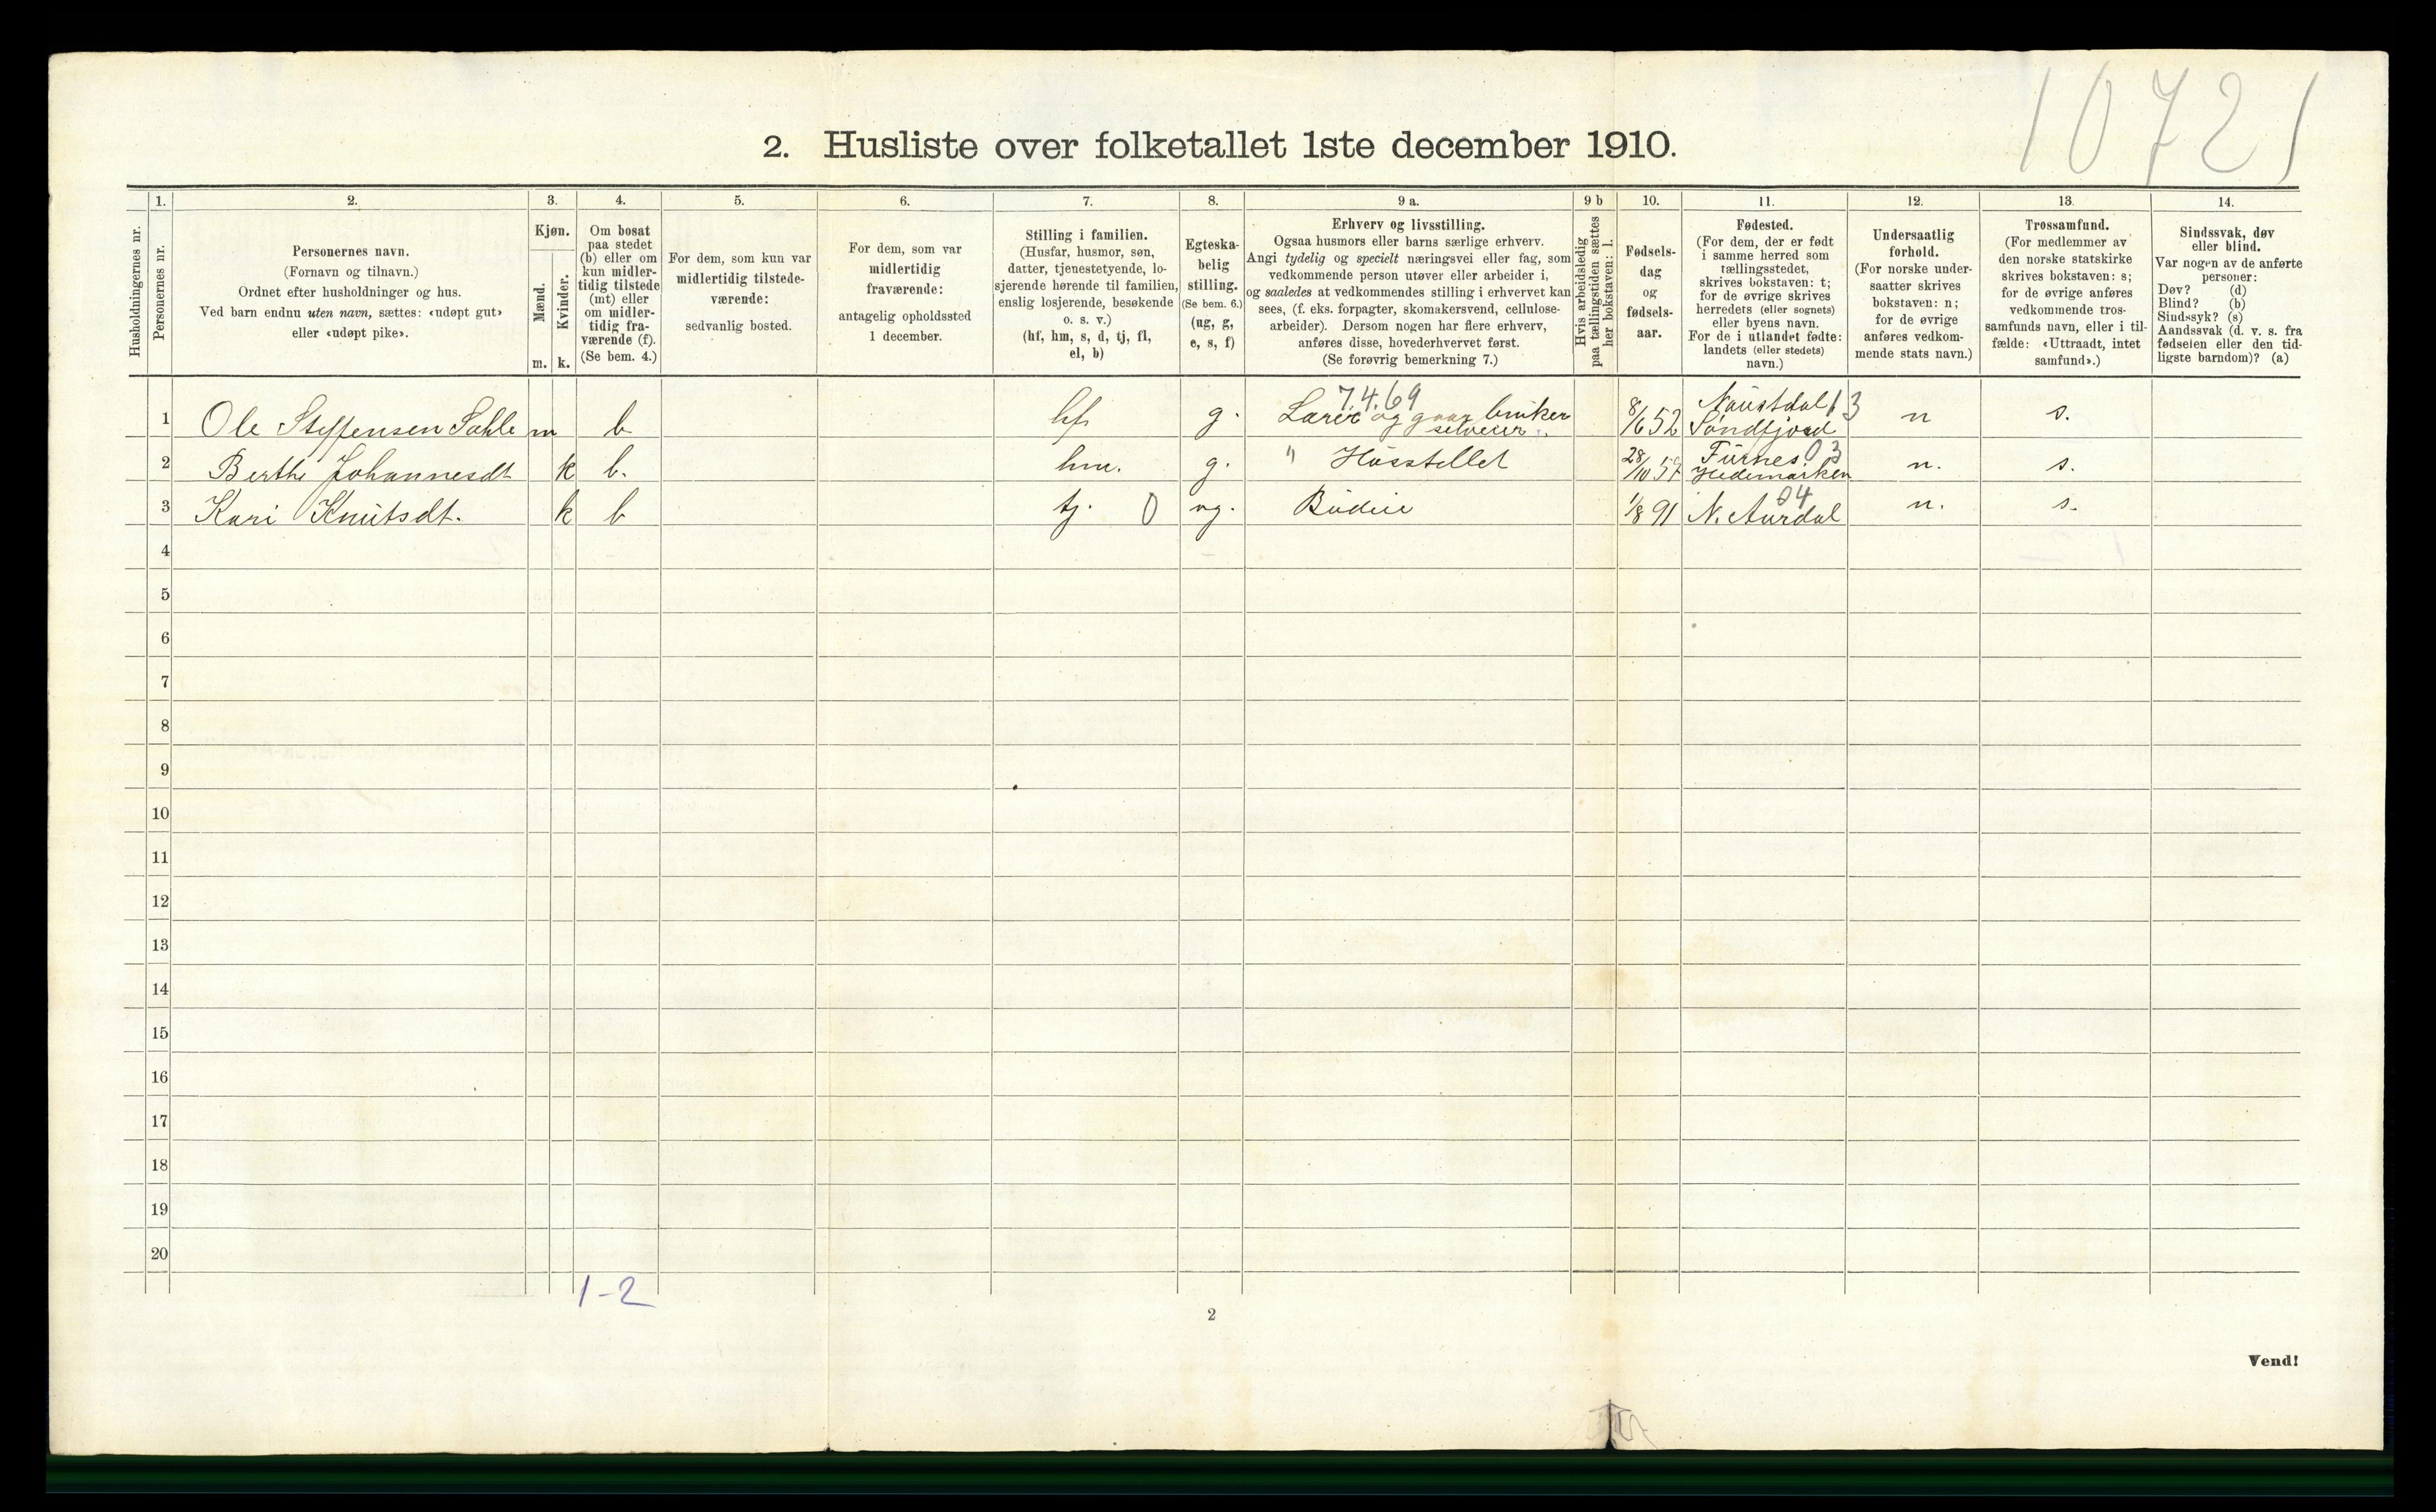 10721
2. Husliste over folketallet 1ste december 1910.
Husholdningernes nr.
1.
Personernes nr.
2.
Personernes navn.
(Fornavn og tilnavn.)
Ordnet efter husholdninger og hus.
Ved barn endnu uten navn, sættes: «udøpt gut»
eller «udøpt pike».
3.
Kjøn.
Mænd.
Kvinder.
m. k.
4.
Om bosat
paa stedet
(b) eller om
kun midler-
tidig tilstede
(mt) eller
om midler-
tidig fra-
værende (f).
(Se bem. 4.)
5.
For dem, som kun var
midlertidig tilstede-
værende:
sedvanlig bosted.
6.
For dem, som var
midlertidig
fraværende:
antagelig opholdssted
1 december.
7.
Stilling i familien.
(Husfar, husmor, søn,
datter, tjenestetyende, lo-
sjerende hørende til familien,
enslig losjerende, besøkende
o. s. v.)
(hf, hm, s, d, tj, fl,
el, b)
8.
Egteska-
belig
stilling.
(Se bem. 6.)
(ug, g,
e, s, f)
9 a.
Erhverv og livsstilling.
Ogsaa husmors eller barns særlige erhverv.
Angi tydelig og specielt næringsvei eller fag, som
vedkommende person utøver eller arbeider i,
og saaledes at vedkommendes stilling i erhvervet kan
sees, (f. eks. forpagter, skomakersvend, cellulose-
arbeider). Dersom nogen har flere erhverv,
anføres disse, hovederhvervet først.
(Se forøvrig bemerkning 7.)
9 b
Hvis arbeidsledig
paa tællingstiden sættes
her bokstaven: l.
10.
Fødsels-
dag
og
fødsels-
aar.
11.
Fødested.
(For dem, der er født
i samme herred som
tællingsstedet,
skrives bokstaven: t;
for de øvrige skrives
herredets (eller sognets)
eller byens navn.
For de i utlandet fødte:
landets (eller stedets)
navn.)
12.
Undersaatlig
forhold.
(For norske under-
saatter skrives
bokstaven: n;
for de øvrige
anføres vedkom-
mende stats navn.)
13.
Trossamfund.
(For medlemmer av
den norske statskirke
skrives bokstaven: s;
for de øvrige anføres
vedkommende tros-
samfunds navn, eller i til-
fælde: «Uttraadt, intet
samfund».)
14.
Sindssvak, døv
eller blind.
Var nogen av de anførte
personer:
Døv? (d)
Blind? (b)
Sindssyk? (s)
Aandssvak (d. v. s. fra
fødselen eller den tid-
ligste barndom)? (a)
7.4.69 Naustdal 13
1 Ole Steffensen Sahle m b hf g. Lærer og gaarbruker selveier 8/6 52 Søndfjord n s.
2 Berthe Johannesdt k b. hm. g. " Husstellet 28/10 Furnes 03 Hedemarken n. s.
04
3 Kari Knutsdt. k b tj. 0 ug. Budeie 1/8 91 N. Aurdal n. s.
4
5
6
7
8
9
10
11
12
13
14
15
16
17
18
19
20
1-2
2
Vend!